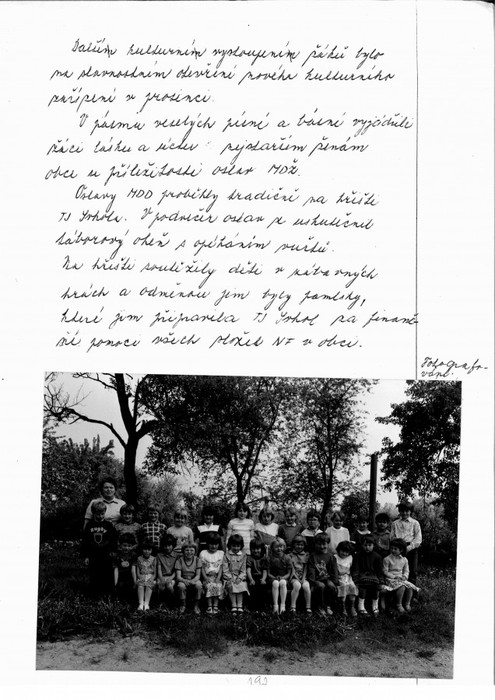 Dalším kulturním vystoupením žáků bylo
na slavnostním otevření nového kulturního
zařízení v prosinci.
V pásmu veselých písní a básní vyjádřili
žáci lásku a úctu nejstarším ženám
obce u příležitosti oslav MDŽ.
Oslavy MDD proběhly tradičně na hřišti
TJ Sokola. V podvečer oslav se uskutečnil
táborový oheň s opékáním vuřtů.
Na hřišti soutěžily děti v zábavných
hrách a odměnou jim byly pamlsky,
které jim připravila TJ Sokol za finanč-
ní pomoci všech složek NF v obci.
Fotografo-
vání.
193